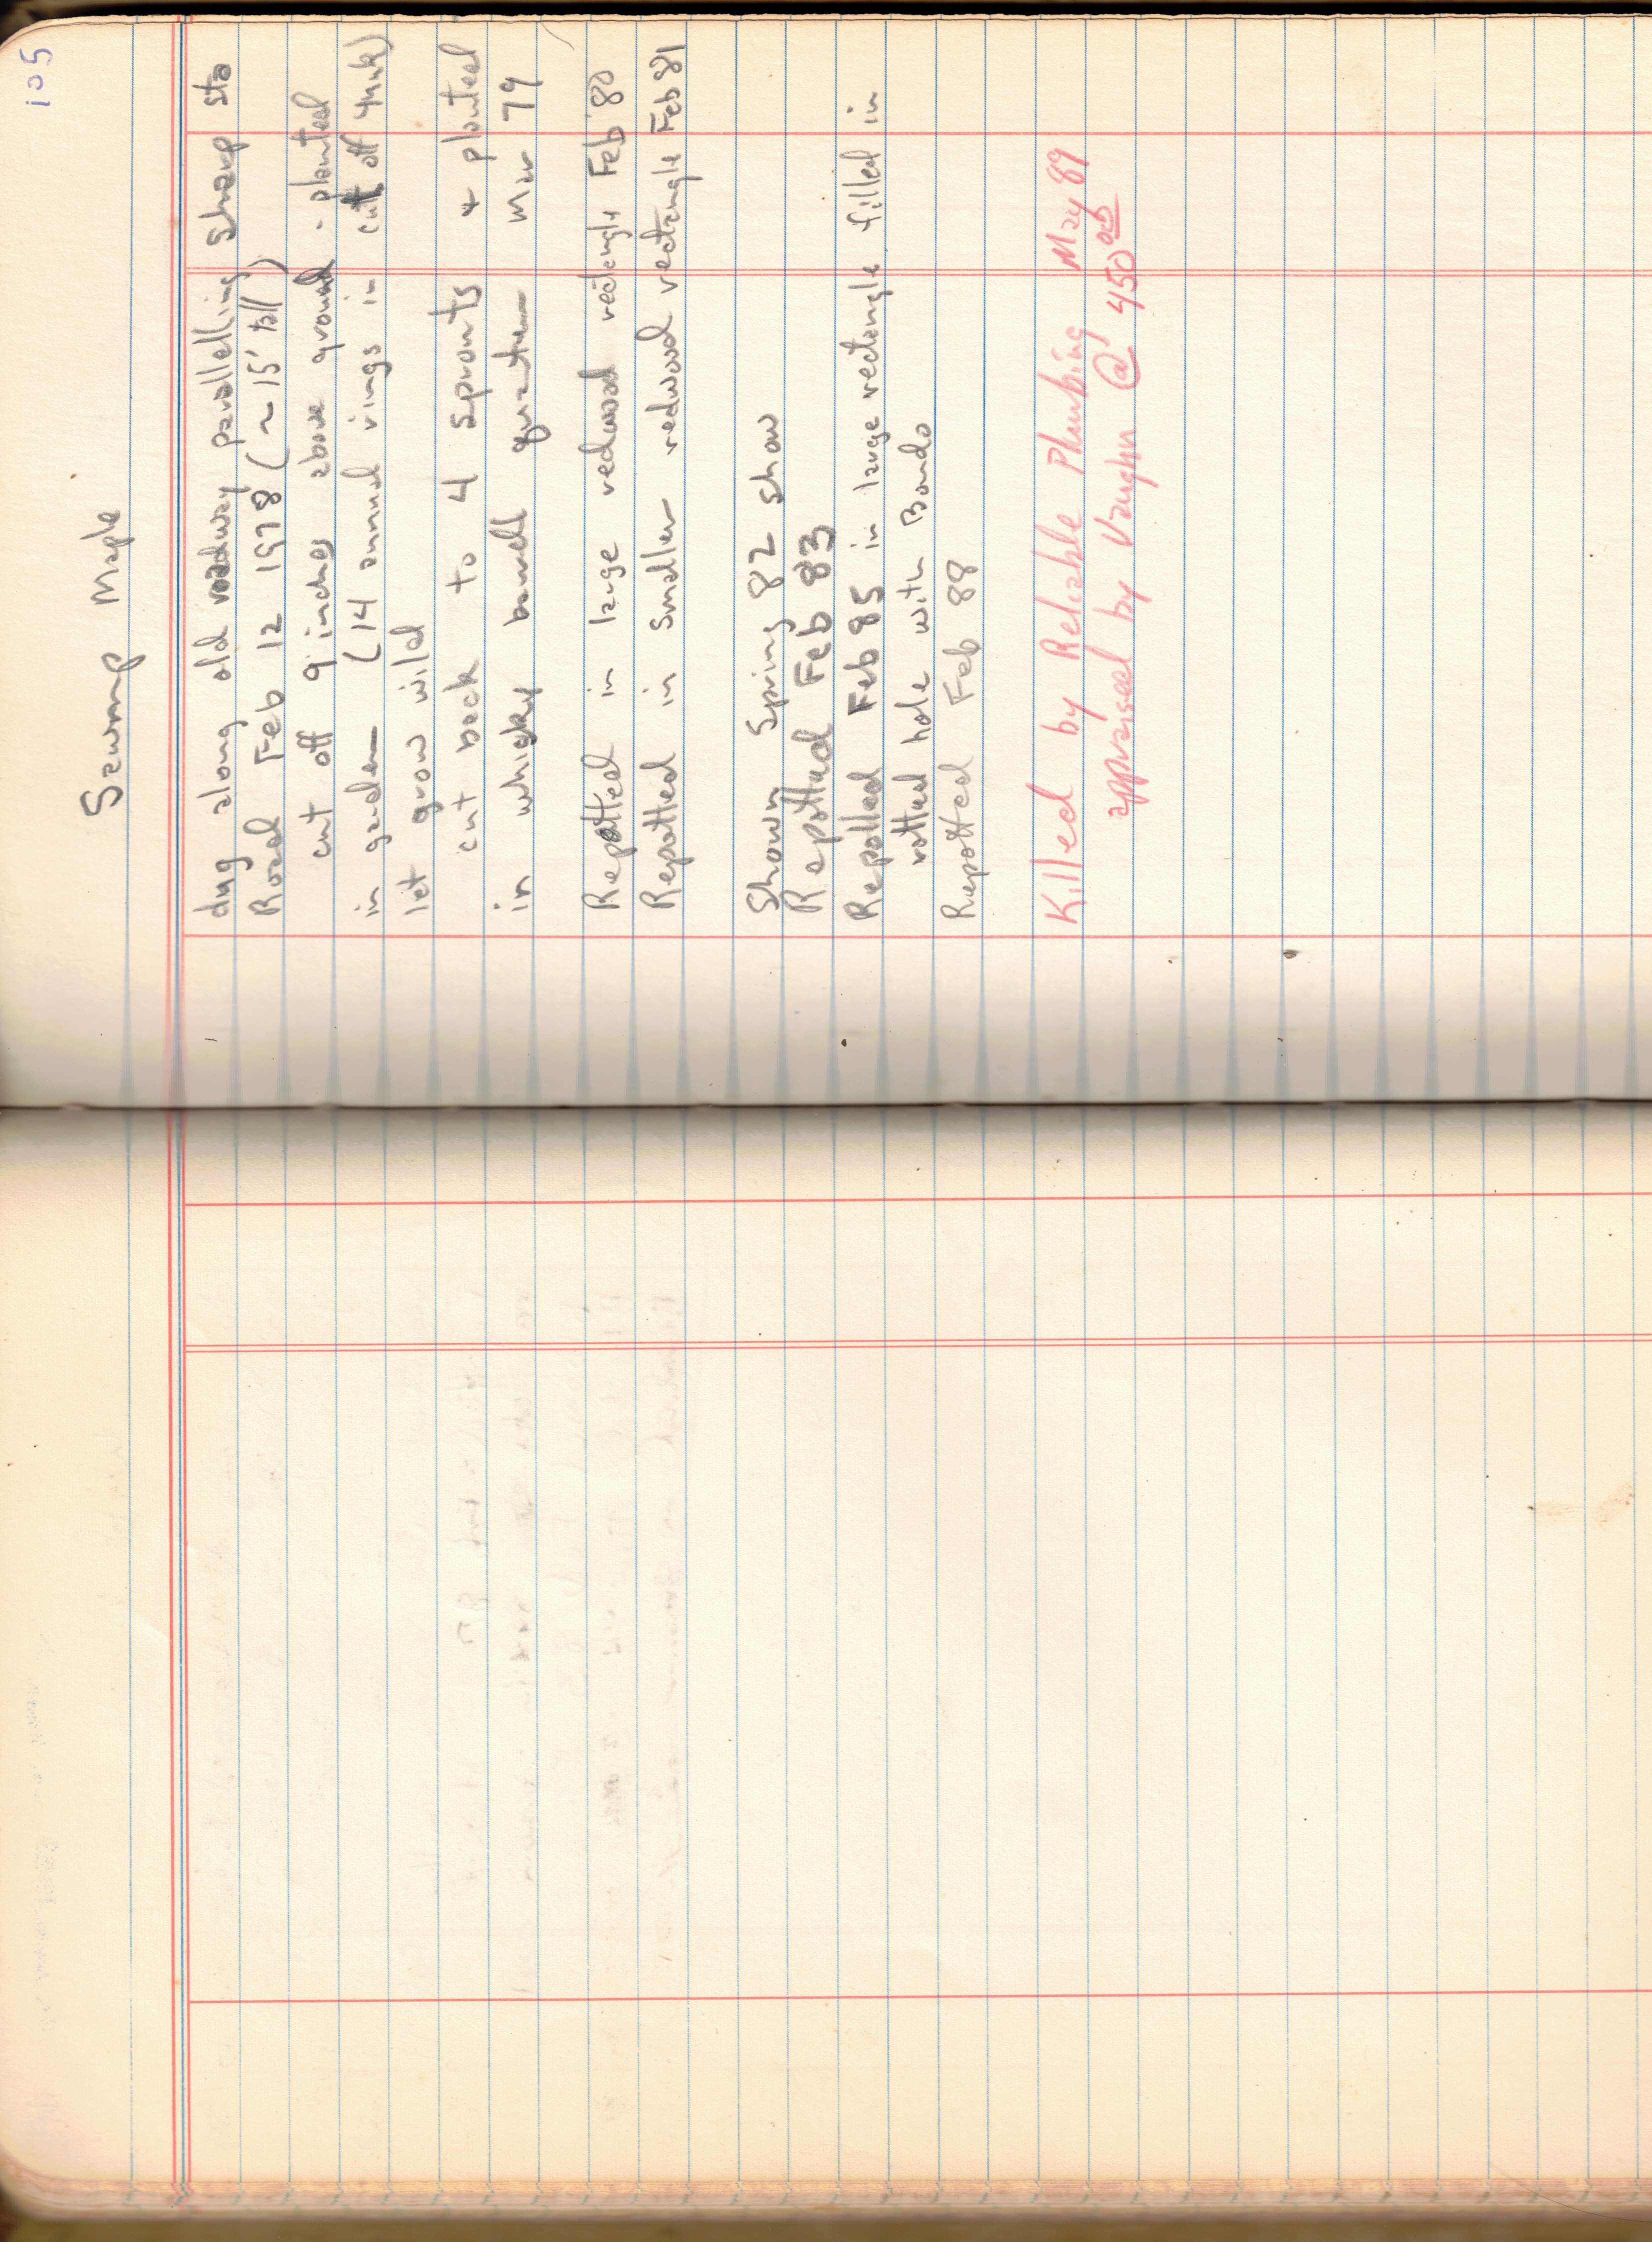 105
Swamp Maple
dug along old roadway parallelling Sharp Sta
Road Feb 12 1978 (~15' tall)
cut off 9 inches above ground - planted
in garden (14 annual rings in cut off trunk)
let grow wild
cut back to 4 sprouts & planted
in whisky barrell quarter Mar 79
Repotted in large redwood rectangle Feb 80
Repotted in smaller redwood rectangle Feb 81
Shown Spring 82 show
Repotted Feb 83
Repotted Feb 85 in large rectangle filled in
rotted hole with Bondo
Repotted Feb 88
Killed by Reliable Plumbing May 89
appraised by Vaughn @ 450.00